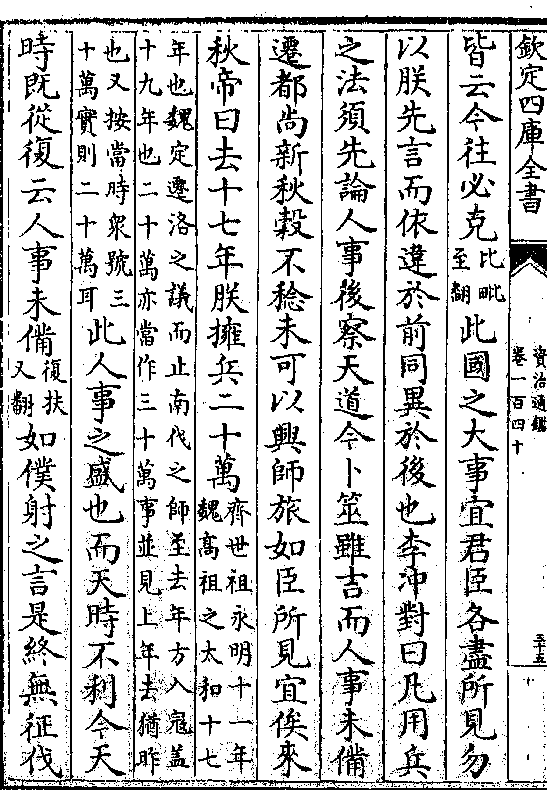 欽定四庫全書
資治通鑑
卷一百四十
三十五
皆云今往必克
比毗
至翻
此國之大事宜君臣各盡所見勿
以朕先言而依違於前同異於後也李沖對曰凡用兵
之法須先論人事後察天道今卜筮雖吉而人事未備
遷都尚新秋穀不稔未可以興師旅如臣所見宜俟來
秋帝曰去十七年朕擁兵二十萬
齊世祖永明十一年
魏髙祖之太和十七
年也魏定遷洛之議而止南伐之師至去年方入寇蓋
十九年也二十萬亦當作三十萬事並見上年去猶昨
也又按當時衆號三
十萬實則二十萬耳
此人事之盛也而天時不利今天
時既從復云人事未備
復扶
又翻
如僕射之言是終無征伐